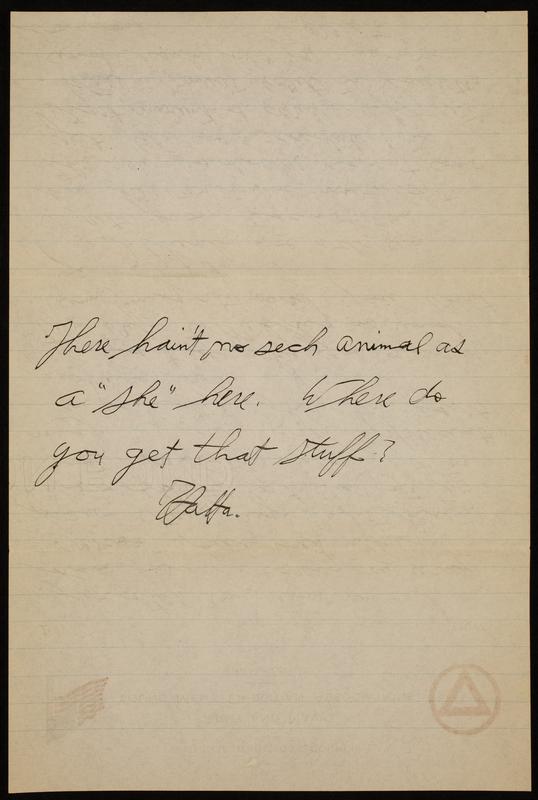 There hain't no sech animal as
a "she" here. Where do
you get that stuff?